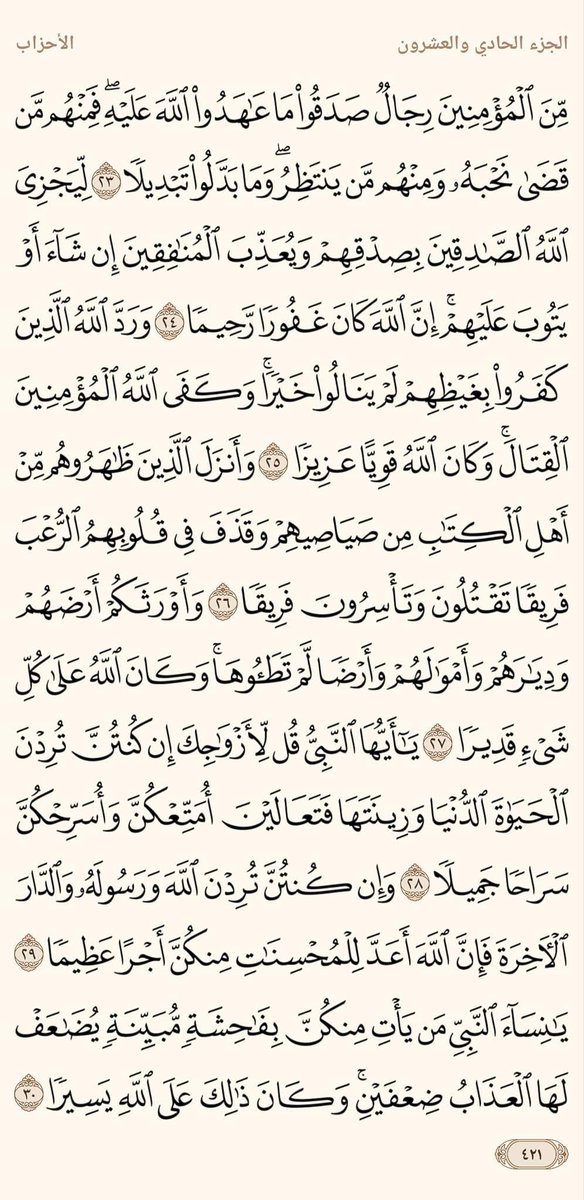 الجزء الحادي والعشرون الأحزاب
مِّنَ ٱلْمُؤْمِنِينَ رِجَالٌ صَدَقُوا۟ مَا عَـٰهَدُوا۟ ٱللَّهَ عَلَيْهِ ۖ فَمِنْهُم مَّن
قَضَىٰ نَحْبَهُۥ وَمِنْهُم مَّن يَنتَظِرُ ۖ وَمَا بَدَّلُوا۟ تَبْدِيلًا ٢٣ لِّيَجْزِىَ
ٱللَّهُ ٱلصَّـٰدِقِينَ بِصِدْقِهِمْ وَيُعَذِّبَ ٱلْمُنَـٰفِقِينَ إِن شَآءَ أَوْ
يَتُوبَ عَلَيْهِمْ ۚ إِنَّ ٱللَّهَ كَانَ غَفُورًا رَّحِيمًا ٢٤ وَرَدَّ ٱللَّهُ ٱلَّذِينَ
كَفَرُوا۟ بِغَيْظِهِمْ لَمْ يَنَالُوا۟ خَيْرًا ۚ وَكَفَى ٱللَّهُ ٱلْمُؤْمِنِينَ
ٱلْقِتَالَ ۚ وَكَانَ ٱللَّهُ قَوِيًّا عَزِيزًا ٢٥ وَأَنزَلَ ٱلَّذِينَ ظَـٰهَرُوهُم مِّنْ
أَهْلِ ٱلْكِتَـٰبِ مِن صَيَاصِيهِمْ وَقَذَفَ فِى قُلُوبِهِمُ ٱلرُّعْبَ
فَرِيقًا تَقْتُلُونَ وَتَأْسِرُونَ فَرِيقًا ٢٦ وَأَوْرَثَكُمْ أَرْضَهُمْ
وَدِيَـٰرَهُمْ وَأَمْوَٰلَهُمْ وَأَرْضًا لَّمْ تَطَـُٔوهَا ۚ وَكَانَ ٱللَّهُ عَلَىٰ كُلِّ
شَىْءٍ قَدِيرًا ٢٧ يَـٰٓأَيُّهَا ٱلنَّبِىُّ قُل لِّأَزْوَٰجِكَ إِن كُنتُنَّ تُرِدْنَ
ٱلْحَيَوٰةَ ٱلدُّنْيَا وَزِينَتَهَا فَتَعَالَيْنَ أُمَتِّعْكُنَّ وَأُسَرِّحْكُنَّ
سَرَاحًا جَمِيلًا ٢٨ وَإِن كُنتُنَّ تُرِدْنَ ٱللَّهَ وَرَسُولَهُۥ وَٱلدَّارَ
ٱلْـَٔاخِرَةَ فَإِنَّ ٱللَّهَ أَعَدَّ لِلْمُحْسِنَـٰتِ مِنكُنَّ أَجْرًا عَظِيمًا ٢٩
يَـٰنِسَآءَ ٱلنَّبِىِّ مَن يَأْتِ مِنكُنَّ بِفَـٰحِشَةٍ مُّبَيِّنَةٍ يُضَـٰعَفْ
لَهَا ٱلْعَذَابُ ضِعْفَيْنِ ۚ وَكَانَ ذَٰلِكَ عَلَى ٱللَّهِ يَسِيرًا ٣٠
٤٢١